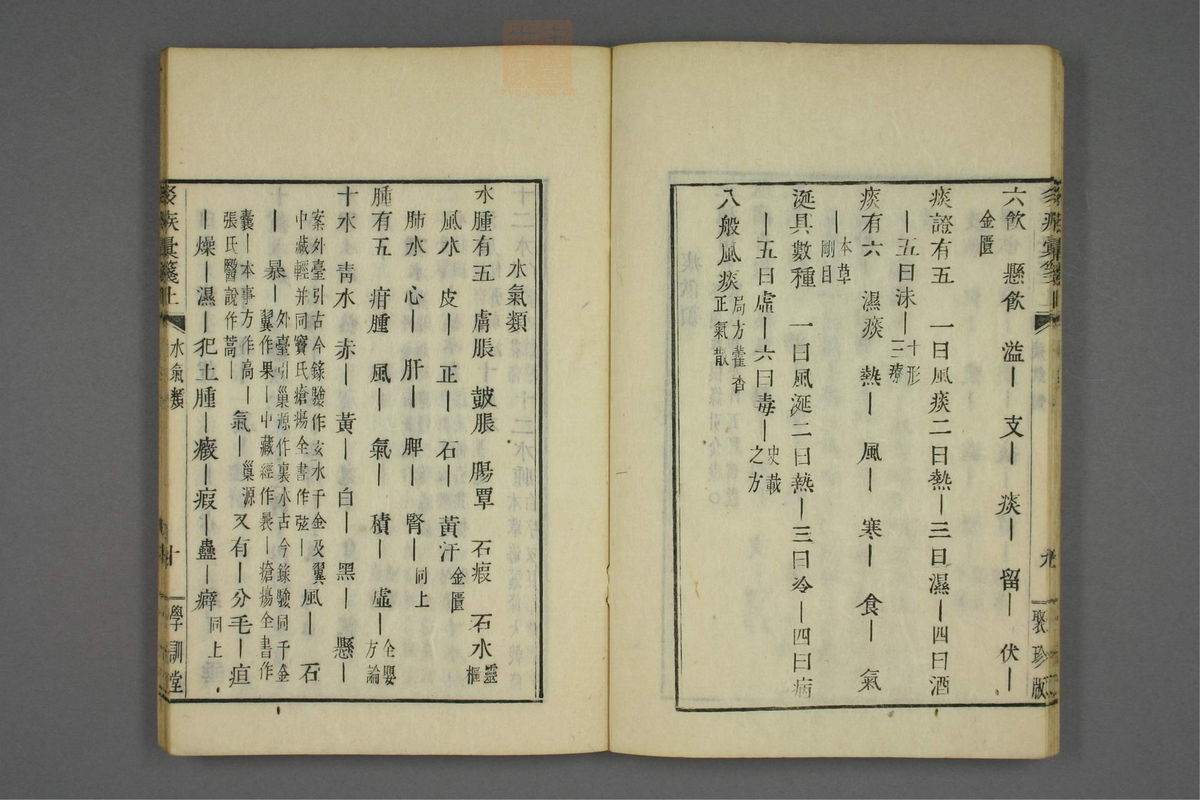 六飲　懸飲　溢｜　支｜　痰｜　留｜　伏｜
金匱
痰證有五　一曰風痰二曰熱｜三曰濕｜四曰酒
｜五曰沫｜十形三療
痰有六　濕痰　熱｜　風｜　寒｜　食｜　氣
｜本草綱目
涎具數種　一曰風涎二曰熱｜三曰冷｜四曰病
｜五曰虛｜六曰毒｜史載之方
八般風痰局方藿香正氣散
聚珍版
水氣類
水腫有五　膚脹　皷脹　腸覃　石瘕　石水靈樞
風水　皮｜　正｜　石｜　黃汗金匱
肺水　心｜　肝｜　脾｜　腎｜同上
腫有五　疳腫　風｜　氣｜　積｜　虛｜全嬰方論
十水　靑水　赤｜　黃｜　白｜　黑｜　懸｜
案外臺引古今錄驗作玄水千金及翼　風｜　石
中藏經并同竇氏瘡瘍全書作弦｜
｜　暴｜外臺引巢源作裏水古今錄驗同千金翼作果｜中藏經作暴｜瘡瘍全書作
囊｜本事方作高｜張氏醫說作蒿｜　氣｜巢源又有｜分毛｜疸
｜燥｜濕｜犯土腫｜癥｜瘕｜蠱｜癖同上
水氣類
學訓堂